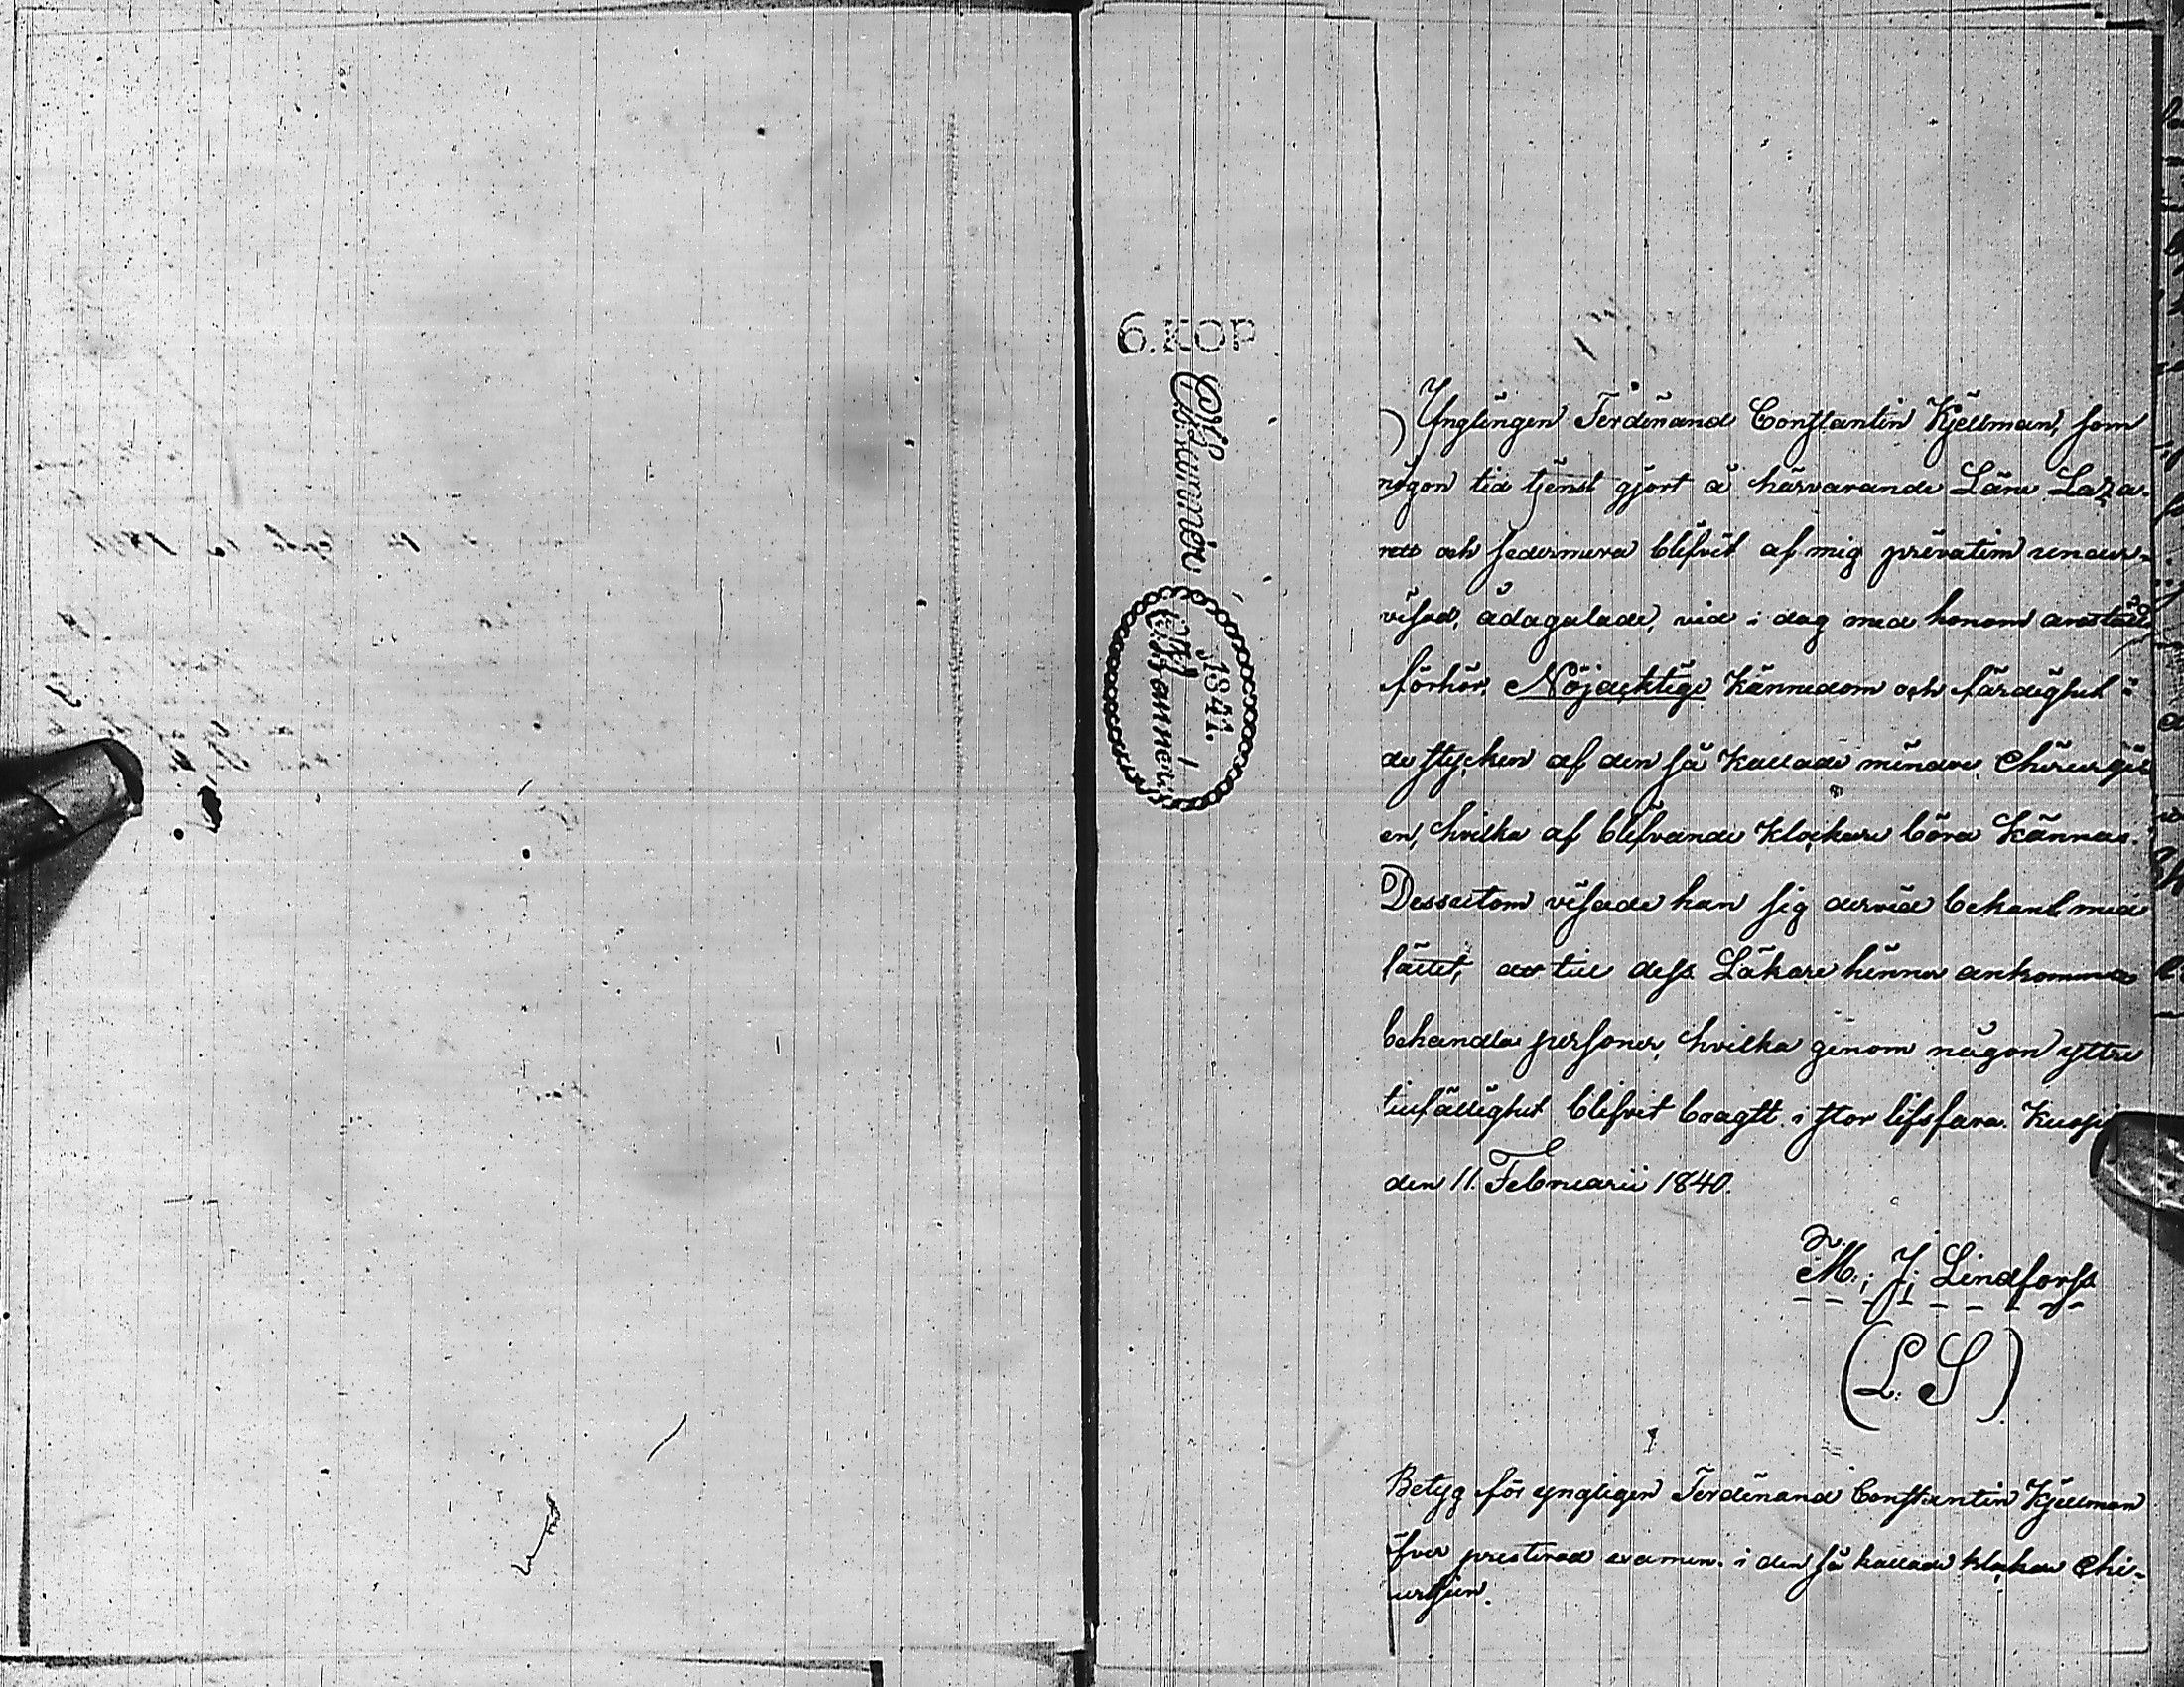 6. KOP
Ynglingen Ferdinand Constantin Kjellman, som
någon tid tjenst gjort å härvarande Läns Laza-
rett och sedermera blifvit af mig privatim under-
visad, ådagalade, vid i dag med honom anstäldt
förhör, Nöjacktige Kännedom och färdighet i
de stycken af den så Kallade mindre Chirurgi-
en, hvilka af blifvande Klockare böra Kännas.
Dessutom visade han sig dervid bekant med
sättet, att till dess Läkare hinner ankomma
behandla personer, hvilka genom någon yttre
tillfällighet blifvit bragtt i stor lifsfara. Kuopio
den 11. Februarii 1840.
M: J: Lindforss
(L. S)
Betyg för yngligen Ferdinand Constantin Kjellman
öfver presterad examen i den så kallade klockare Chi-
rurgien.
1841.